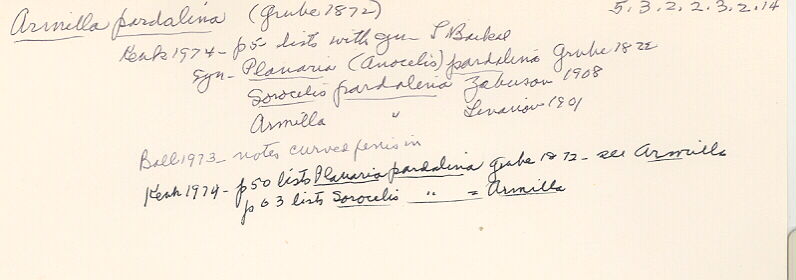 Armilla pardalina (Grube 1872) 5.3.2.2.3.2.14
Kenk 1974 - p5 lists with syn - L Baikal
Syn - Planaria (Anocelis) pardalina Grube 1872
Sorocelis pardalina Zabusov 1908
Armilla " Livanov 1901
Ball 1973 - notes curved penis in
Kenk 1974 - p50 lists Planaria pardalina Grube 1872 - see Armilla
p 63 lists Sorocelis " = Armilla